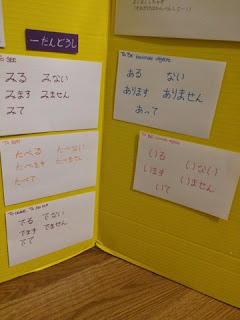 一だんどうし
To SEE
みる みない
みます みません
みて
To EAT
たべる たべない
たべます たべません
たべて
To LEAVE, To GO OUT
でる でない
でます でません
でて
ある ない
あります ありません
あって
いる いない
います いません
いて